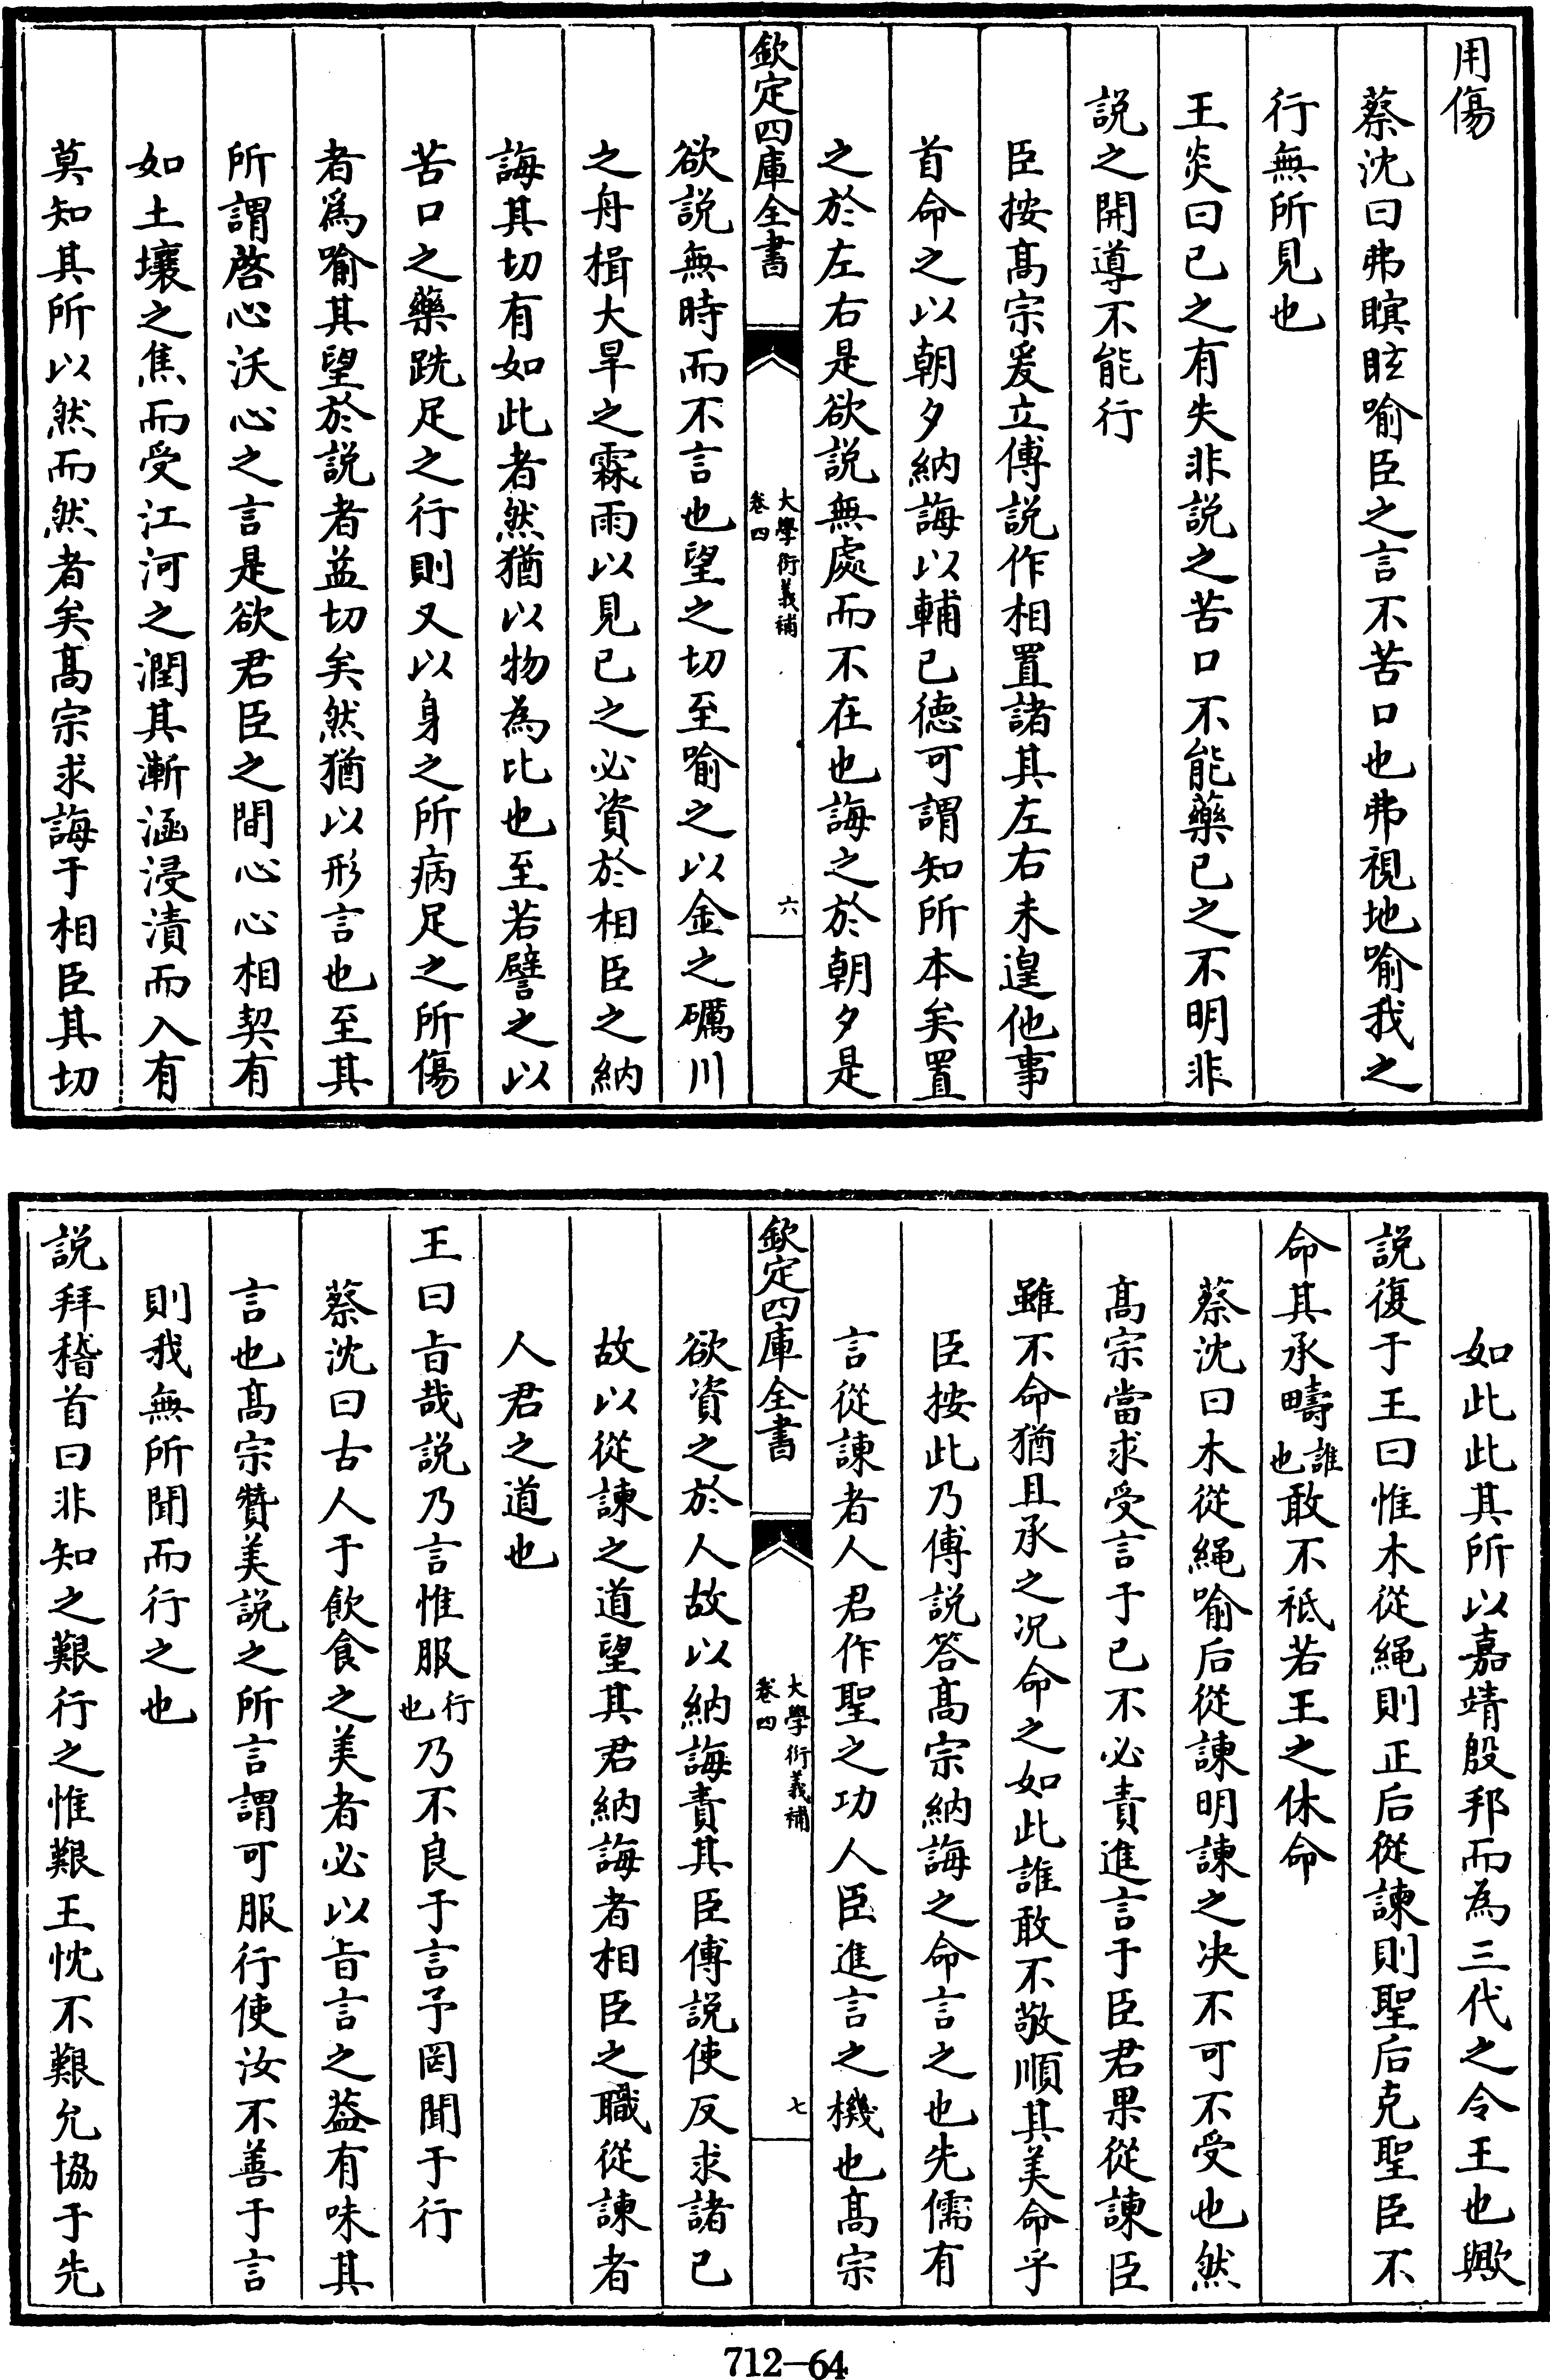 用傷
蔡沈曰弗瞑眩喻臣之言不苦口也弗視地喻我之
行無所見也
王炎曰已之有失非説之苦口不能藥已之不明非
説之開導不能行
臣按髙宗爰立傅説作相置諸其左右未遑他事
首命之以朝夕納誨以輔已徳可謂知所本矣置
之於左右是欲説無處而不在也誨之於朝夕是
欽定四庫全書
大學衍義補
卷四
六
欲説無時而不言也望之切至喻之以金之礪川
之舟楫大旱之霖雨以見已之必資於相臣之納
誨其切有如此者然猶以物為比也至若譬之以
苦口之藥跣足之行則又以身之所病足之所傷
者爲喻其望於説者益切矣然猶以形言也至其
所謂啓心沃心之言是欲君臣之間心心相契有
如土壤之焦而受江河之潤其漸涵浸漬而入有
莫知其所以然而然者矣髙宗求誨于相臣其切
如此此其所以嘉靖殷邦而為三代之令王也歟
説復于王曰惟木從繩則正后從諫則聖后克聖臣不
命其承疇誰也敢不祗若王之休命
蔡沈曰木從繩喻后從諫明諫之决不可不受也然
髙宗當求受言于已不必責進言于臣君果從諫臣
雖不命猶且承之况命之如此誰敢不敬順其美命乎
臣按此乃傅説答髙宗納誨之命言之也先儒有
言從諫者人君作聖之功人臣進言之機也髙宗
欽定四庫全書
大學衍義補
卷四
七
欲資之於人故以納誨責其臣傅説使反求諸已
故以從諫之道望其君納誨者相臣之職從諫者
人君之道也
王曰㫖哉説乃言惟服行也乃不良于言予罔聞于行
蔡沈曰古人于飲食之美者必以㫖言之葢有味其
言也髙宗贊美説之所言謂可服行使汝不善于言
則我無所聞而行之也
説拜稽首曰非知之艱行之惟艱王忱不艱允協于先
712—64